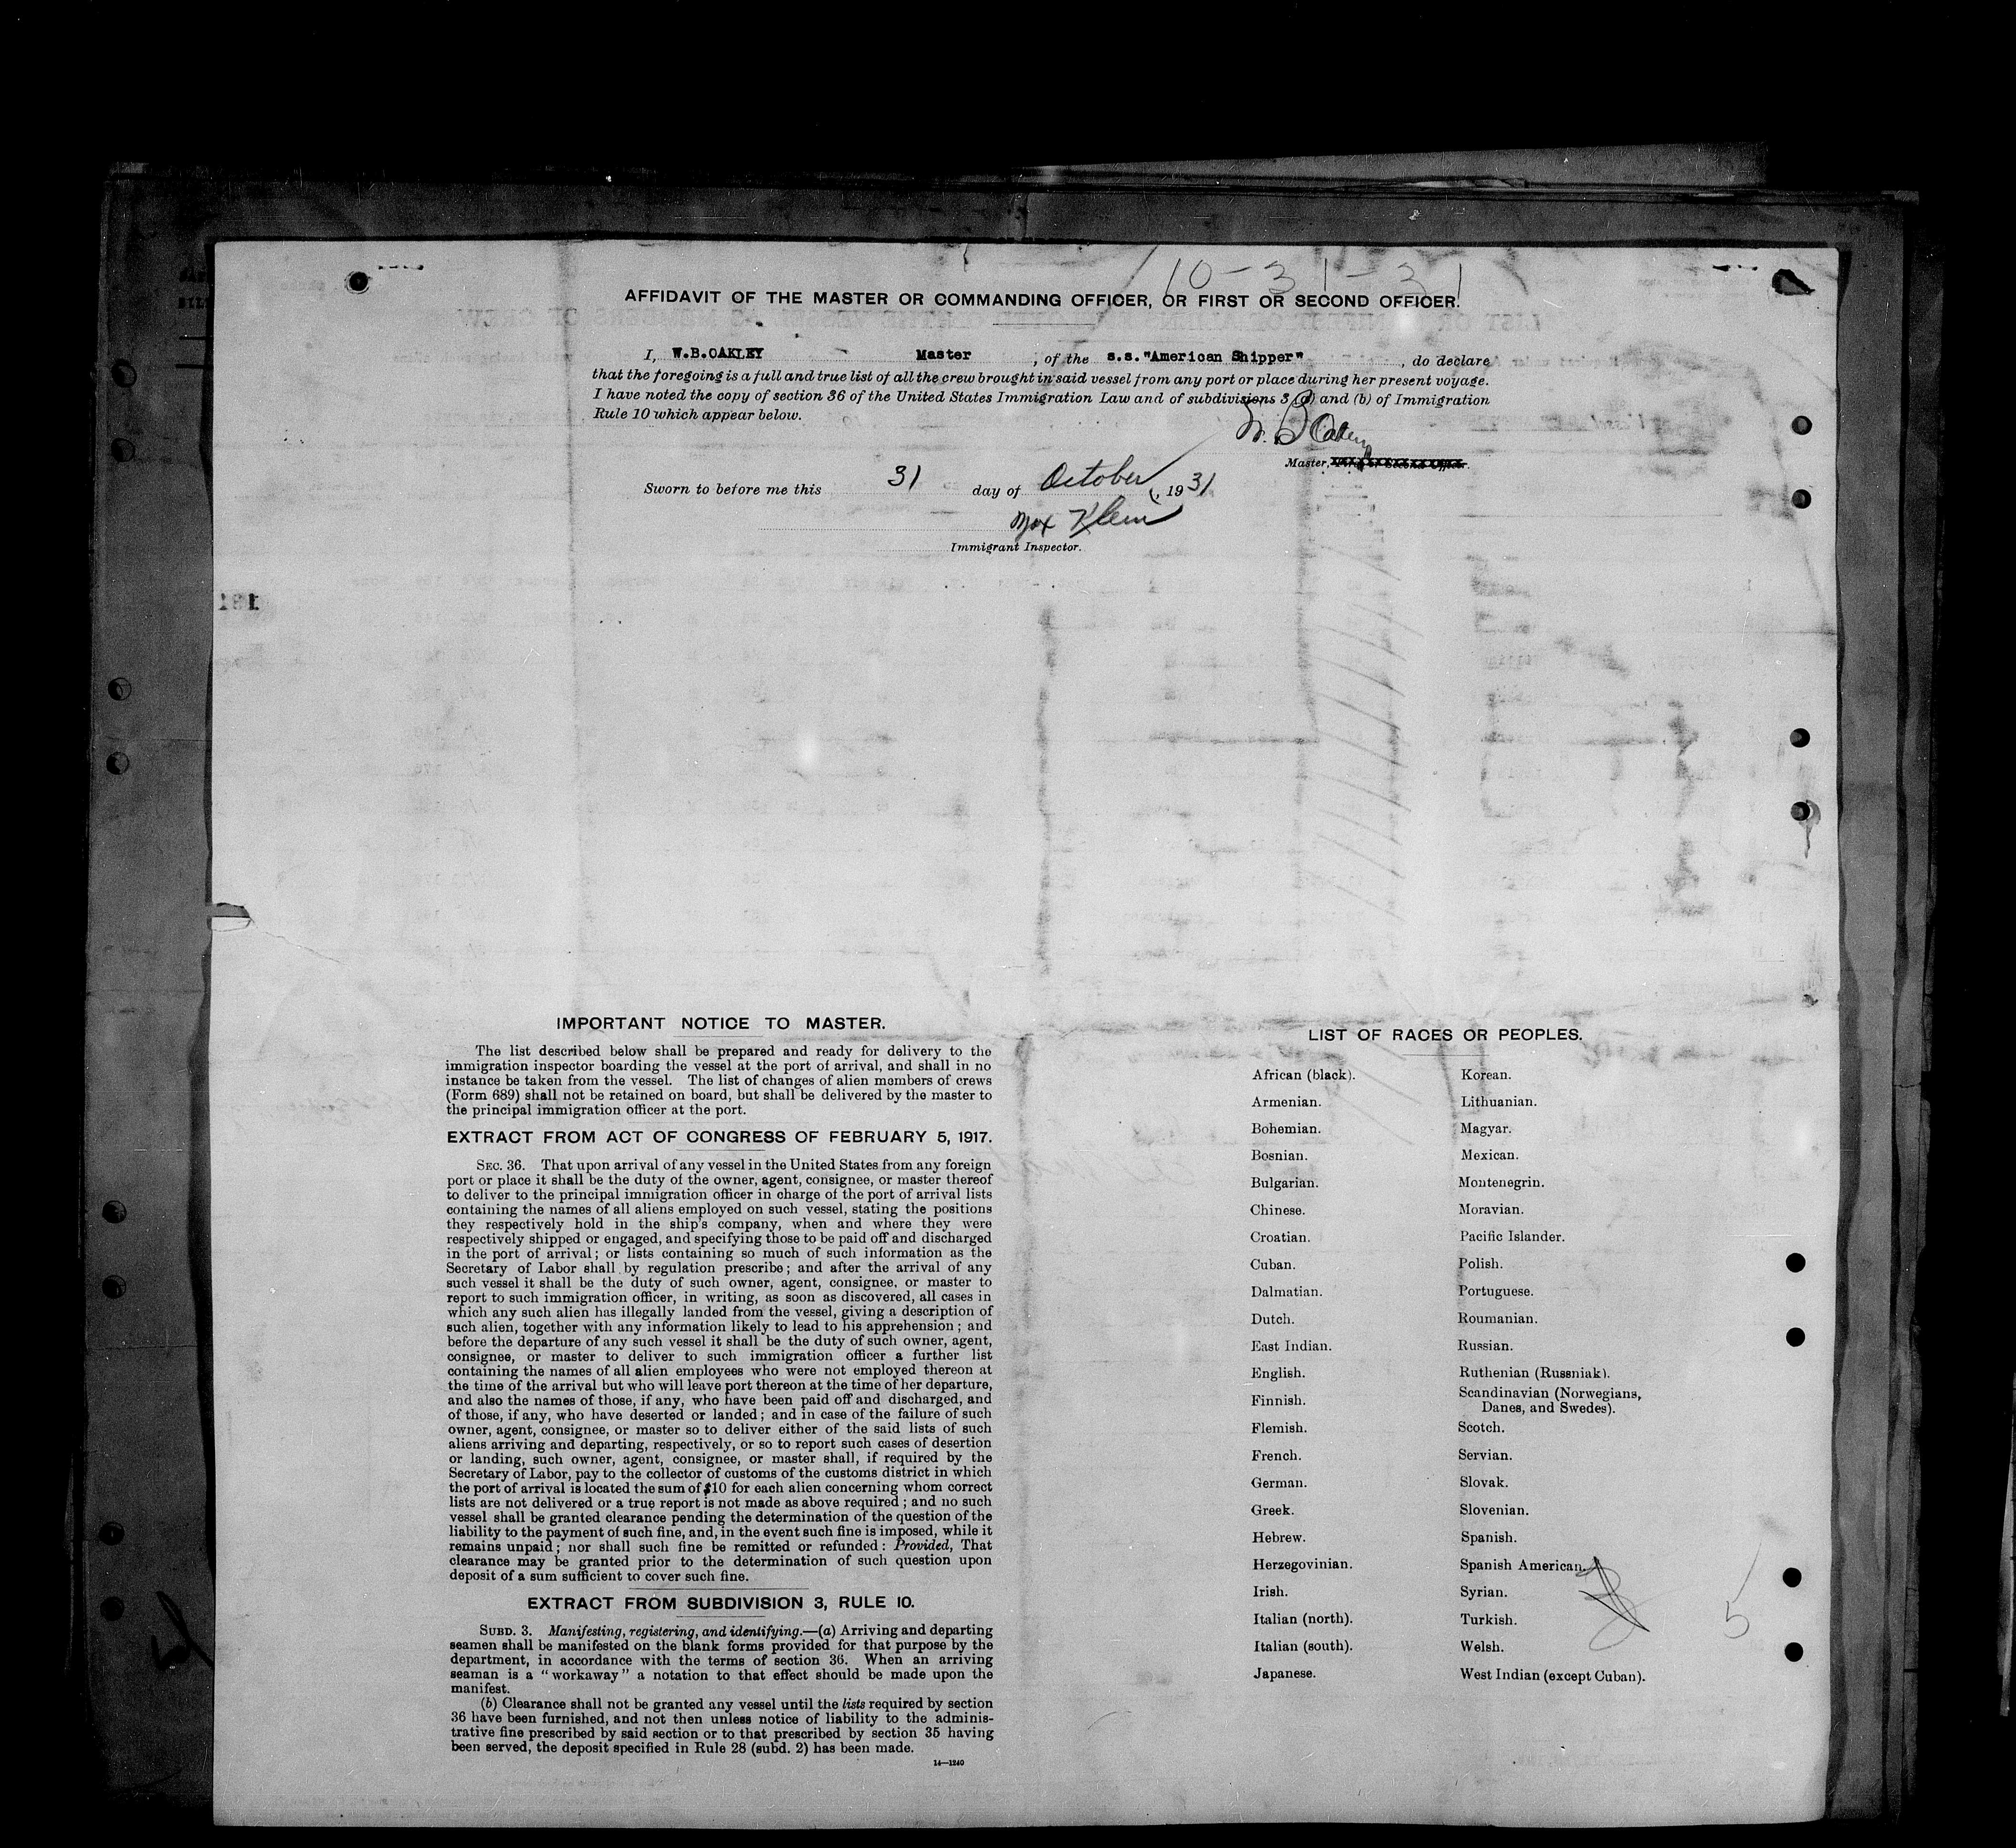 10-31-31
AFFIDAVIT OF THE MASTER OR COMMANDING OFFICER, OR FIRST OR SECOND OFFICER.
I, W.B.OAKLEY Master, of the s.s."American Shipper", do declare
that the foregoing is a full and true list of all the crew brought in said vessel from any port or place during her present voyage.
I have noted the copy of section 36 of the United States Immigration Law and of subdivisions 3 (a) and (b) of Immigration
Rule 10 which appear below.
W. B Oakley
Master,
Sworn to before me this 31 day of October, 1931
Max Klein
Immigrant Inspector.
IMPORTANT NOTICE TO MASTER.
The list described below shall be prepared and ready for delivery to the
immigration inspector boarding the vessel at the port of arrival, and shall in no
instance be taken from the vessel. The list of changes of alien members of crews
(Form 689) shall not be retained on board, but shall be delivered by the master to
the principal immigration officer at the port.
EXTRACT FROM ACT OF CONGRESS OF FEBRUARY 5, 1917.
SEC. 36. That upon arrival of any vessel in the United States from any foreign
port or place it shall be the duty of the owner, agent, consignee, or master thereof
to deliver to the principal immigration officer in charge of the port of arrival lists
containing the names of all aliens employed on such vessel, stating the positions
they respectively hold in the ship's company, when and where they were
respectively shipped or engaged, and specifying those to be paid off and discharged
in the port of arrival; or lists containing so much of such information as the
Secretary of Labor shall by regulation prescribe; and after the arrival of any
such vessel it shall be the duty of such owner, agent, consignee, or master to
report to such immigration officer, in writing, as soon as discovered, all cases in
which any such alien has illegally landed from the vessel, giving a description of
such alien, together with any information likely to lead to his apprehension; and
before the departure of any such vessel it shall be the duty of such owner, agent,
consignee, or master to deliver to such immigration officer a further list
containing the names of all alien employees who were not employed thereon at
the time of the arrival but who will leave port thereon at the time of her departure,
and also the names of those, if any, who have been paid off and discharged, and
of those, if any, who have deserted or landed; and in case of the failure of such
owner, agent, consignee, or master so to deliver either of the said lists of such
aliens arriving and departing, respectively, or so to report such cases of desertion
or landing, such owner, agent, consignee, or master shall, if required by the
Secretary of Labor, pay to the collector of customs of the customs district in which
the port of arrival is located the sum of $10 for each alien concerning whom correct
lists are not delivered or a true report is not made as above required; and no such
vessel shall be granted clearance pending the determination of the question of the
liability to the payment of such fine, and, in the event such fine is imposed, while it
remains unpaid; nor shall such fine be remitted or refunded: Provided, That
clearance may be granted prior to the determination of such question upon
deposit of a sum sufficient to cover such fine.
EXTRACT FROM SUBDIVISION 3, RULE 10.
SUBD. 3. Manifesting, registering, and identifying.—(a) Arriving and departing
seamen shall be manifested on the blank forms provided for that purpose by the
department, in accordance with the terms of section 36. When an arriving
seaman is a "workaway" a notation to that effect should be made upon the
manifest.
(b) Clearance shall not be granted any vessel until the lists required by section
36 have been furnished, and not then unless notice of liability to the adminis-
trative fine prescribed by said section or to that prescribed by section 35 having
been served, the deposit specified in Rule 28 (subd. 2) has been made.
14—1240
LIST OF RACES OR PEOPLES.
African (black).
Armenian.
Bohemian.
Bosnian.
Bulgarian.
Chinese.
Croatian.
Cuban.
Dalmatian.
Dutch.
East Indian.
English.
Finnish.
Flemish.
French.
German.
Greek.
Hebrew.
Herzegovinian.
Irish.
Italian (north).
Italian (south).
Japanese.
Korean.
Lithuanian.
Magyar.
Mexican.
Montenegrin.
Moravian.
Pacific Islander.
Polish.
Portuguese.
Roumanian.
Russian.
Ruthenian (Russniak).
Scandinavian (Norwegians,
Danes, and Swedes).
Scotch.
Servian.
Slovak.
Slovenian.
Spanish.
Spanish American.
Syrian.
Turkish.
Welsh.
West Indian (except Cuban).
5